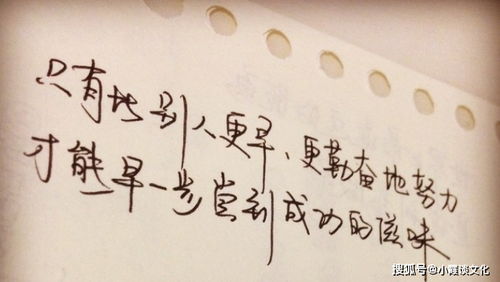 只有比别人更早、更勤奋地努力
才能早一步尝到成功的滋味
搜狐号@小霞谈文化